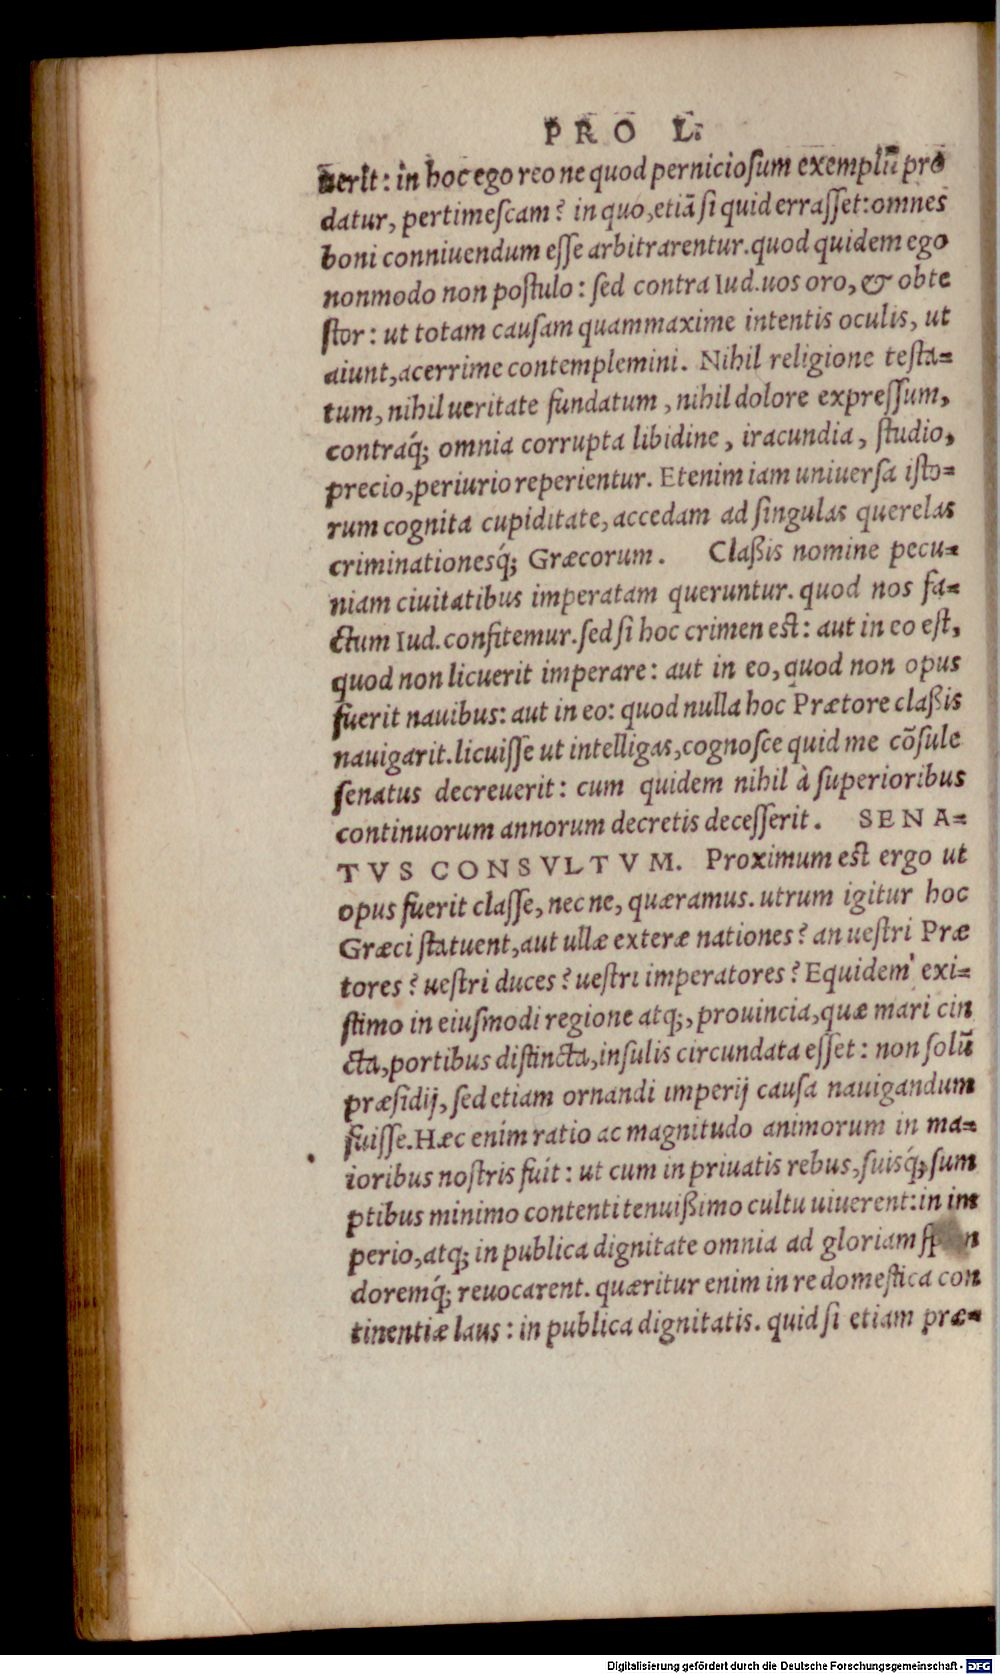 PRO L.
uerit: in hoc ego reo ne quod perniciosum exemplū pro
datur, pertimescam? in quo, etiā si quid errasset: omnes
boni conniuendum esse arbitrarentur. quod quidem ego
nonmodo non postulo: sed contra Iud. uos oro, & obte
stor: ut totam causam quammaxime intentis oculis, ut
aiunt, acerrime contemplemini. Nihil religione testa=
tum, nihil ueritate fundatum, nihil dolore expressum,
contraq́; omnia corrupta libidine, iracundia, studio,
precio, periurio reperientur. Etenim iam uniuersa isto=
rum cognita cupiditate, accedam ad singulas querelas
criminationesq́; Græcorum. Claßis nomine pecu=
niam ciuitatibus imperatam queruntur. quod nos fa=
ctum Iud. confitemur. sed si hoc crimen est: aut in eo est,
quod non licuerit imperare: aut in eo, quod non opus
fuerit nauibus: aut in eo: quod nulla hoc Prætore claßis
nauigarit. licuisse ut intelligas, cognosce quid me cōsule
senatus decreuerit: cum quidem nihil à superioribus
continuorum annorum decretis decesserit. SENA=
TVS CONSVLTVM. Proximum est ergo ut
opus fuerit classe, nec ne, quæramus. utrum igitur hoc
Græci statuent, aut ullæ exteræ nationes? an uestri Præ
tores? uestri duces? uestri imperatores? Equidem exi=
stimo in eiusmodi regione atq;, prouincia, quæ mari cin
cta, portibus distincta, insulis circundata esset: non solū
præsidij, sed etiam ornandi imperij causa nauigandum
fuisse. Hæc enim ratio ac magnitudo animorum in ma=
ioribus nostris fuit: ut cum in priuatis rebus, suisq́; sum
ptibus minimo contenti tenuißimo cultu uiuerent: in im
perio, atq; in publica dignitate omnia ad gloriam
doremq́; reuocarent. quæritur enim in re domestica con
tinentiæ laus: in publica dignitatis. quid si etiam præ=
Digitalisierung gefördert durch die Deutsche Forschungsgemeinschaft - DFG